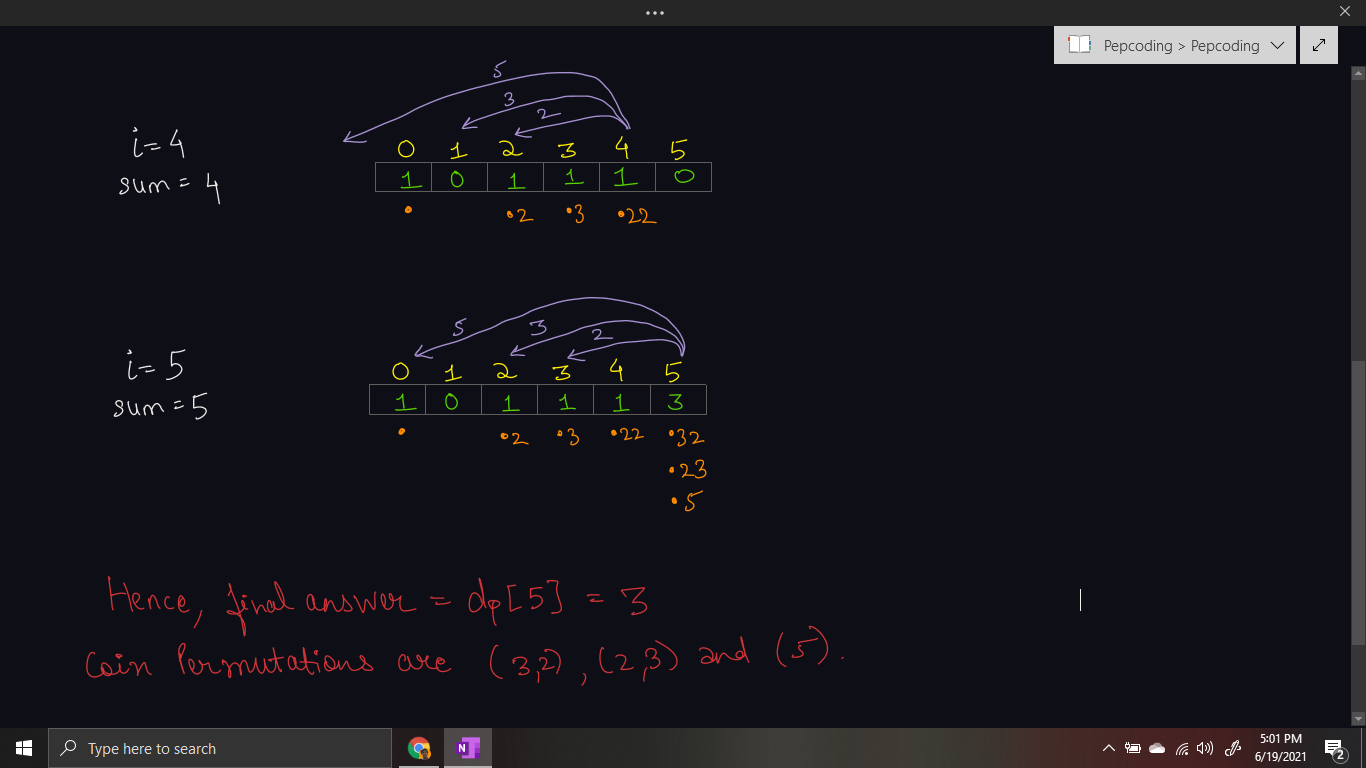 Pepcoding > Pepcoding
5
3
2
i= 4
sum = 4
0 1 2 3 4 5
1 0 1 1 1 0
. .2 .3 .22
5 3 2
i= 5
sum = 5
0 1 2 3 4 5
1 0 1 1 1 3
. .2 .3 .22 .32
.23
.5
Hence, final answer = dp[5] = 3
Coin Permutations are (3,2), (2,3) and (5).
Type here to search
N
5:01 PM
6/19/2021
2